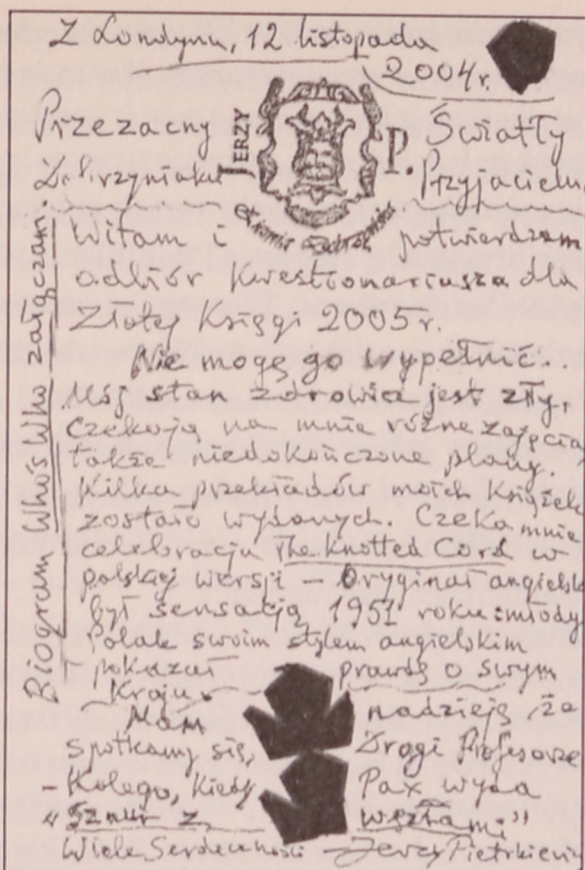 Z Londynu, 12 listopada
2004 r.
Przezacny
JERZY
P.
Światły
Dobrzyniaku
Przyjacielu
Witam i potwierdzam
odbiór kwestionariusza dla
Złotej Księgi 2005 r.
Nie mogę go wypełnić..
Mój stan zdrowia jest zły.
Czekają na mnie różne zajęcia
także niedokończone plany.
Kilka przekładów moich książek
zostało wydanych. Czeka mnie
celebracja The Knotted Cord w
polskiej wersji – oryginał angielsk
był sensacją 1951 roku: młody
Polak swoim stylem angielskim
pokazał prawdę o swym
Kraju.
Mam nadzieję, że
spotkamy się, Drogi Profesorze
– Kolego, kiedy Pax wyda
"Sznur z węzłami"
Wiele Serdeczności Jerzy Pietrkiewicz
Biogram Who's Who załączam.